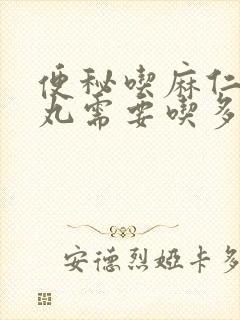 便秘喫麻仁
丸需要喫多
安德烈婭卡多